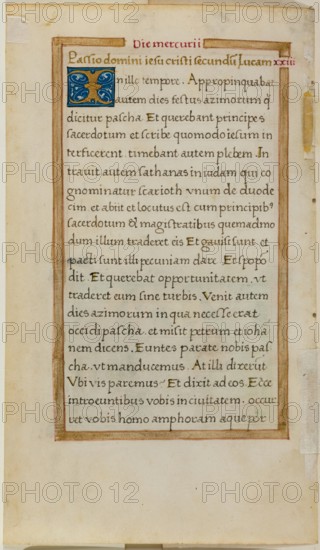 Die mercurii
Passio domini iesu cristi secundū Lucam xxiii
In illo tempore. Appropinquabat
autem dies festus azimorum q
dicitur pascha. Et querebant principes
sacerdotum et scribe quomodo iesum in
terficerent. timebant autem plebem. In
travit autem sathanas in iudam qui co
gnominatur scarioth unum de duode
cim et abiit et locutus est cum principib9
sacerdotum & magistratibus quemadmo
dum illum traderet eis Et gavisi sunt. et
pacti sunt illi pecuniam dare. Et spopo
dit. Et querebat opportunitatem. vt
traderet eum sine turbis. Venit autem
dies azimorum in qua necesse erat
occidi pascha. et misit petrum et ioha
nem dicens. Euntes parate nobis pas
cha. vt manducemus. At illi dixerūt
Vbi vis paremus. Et dixit ad eos. Ecce
introeuntibus vobis in civitatem. occur
ret vobis homo amphoram aque por